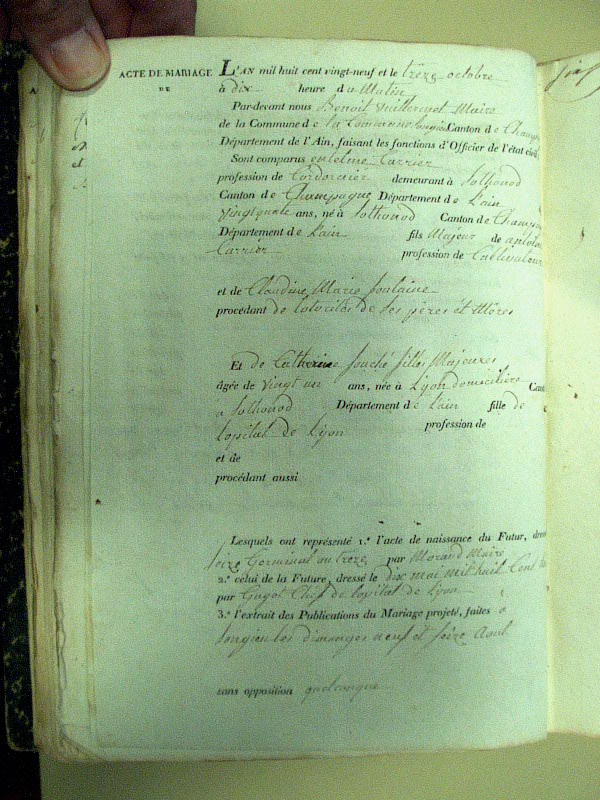 ACTE DE MARIAGE
DE
L'AN mil huit cent vingt-neuf et le treze octobre
à dix heure du Matin
Par-devant nous Benoit Maire
de la Commune de la Canton de Champ
Département de l'Ain, faisant les fonctions d'Officier de l'état civil,
Sont comparus entelme Carrier
profession de Cordonnier demeurant à Sothonod
Canton de Champagne Département de L'ain
vingt quate ans, né à Sothonod Canton de Champ
Département de L'ain fils Majeur de
Carrier profession de Cultivateur
et de Claudine Marie fontaine
procédant de lotorités de ses pères et Mères
Et de Catherine fouché filles Majeures
âgée de vingt un ans, née à Lyon domiciliée Cant
a Sothonod Département de L'ain fille de
lopital de Lyon profession de
et de
procédant aussi
Lesquels ont représenté 1.° l'acte de naissance du Futur, dres
seize Germinal an treze par Morand Maire
2.° celui de la Future, dressé le dix mai mil huit Cent
par Guyot Chef de lopital de Lyon
3.° l'extrait des Publications du Mariage projeté, faites a
Songieu les dimanges neuf et seize Aout
sans opposition quelconque